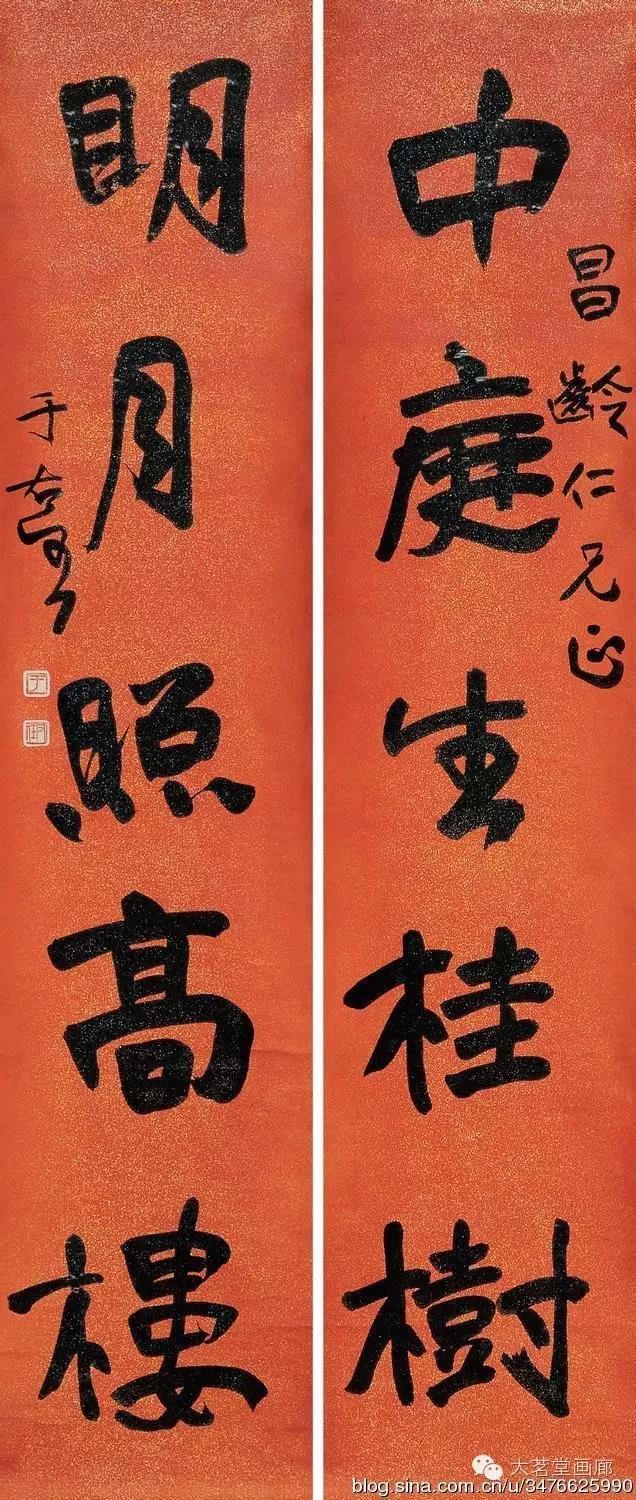 中庭生桂樹
昌齡仁兄正
明月照高樓
于右任
大茗堂画廊
blog.sina.com.cn/u/3476625990